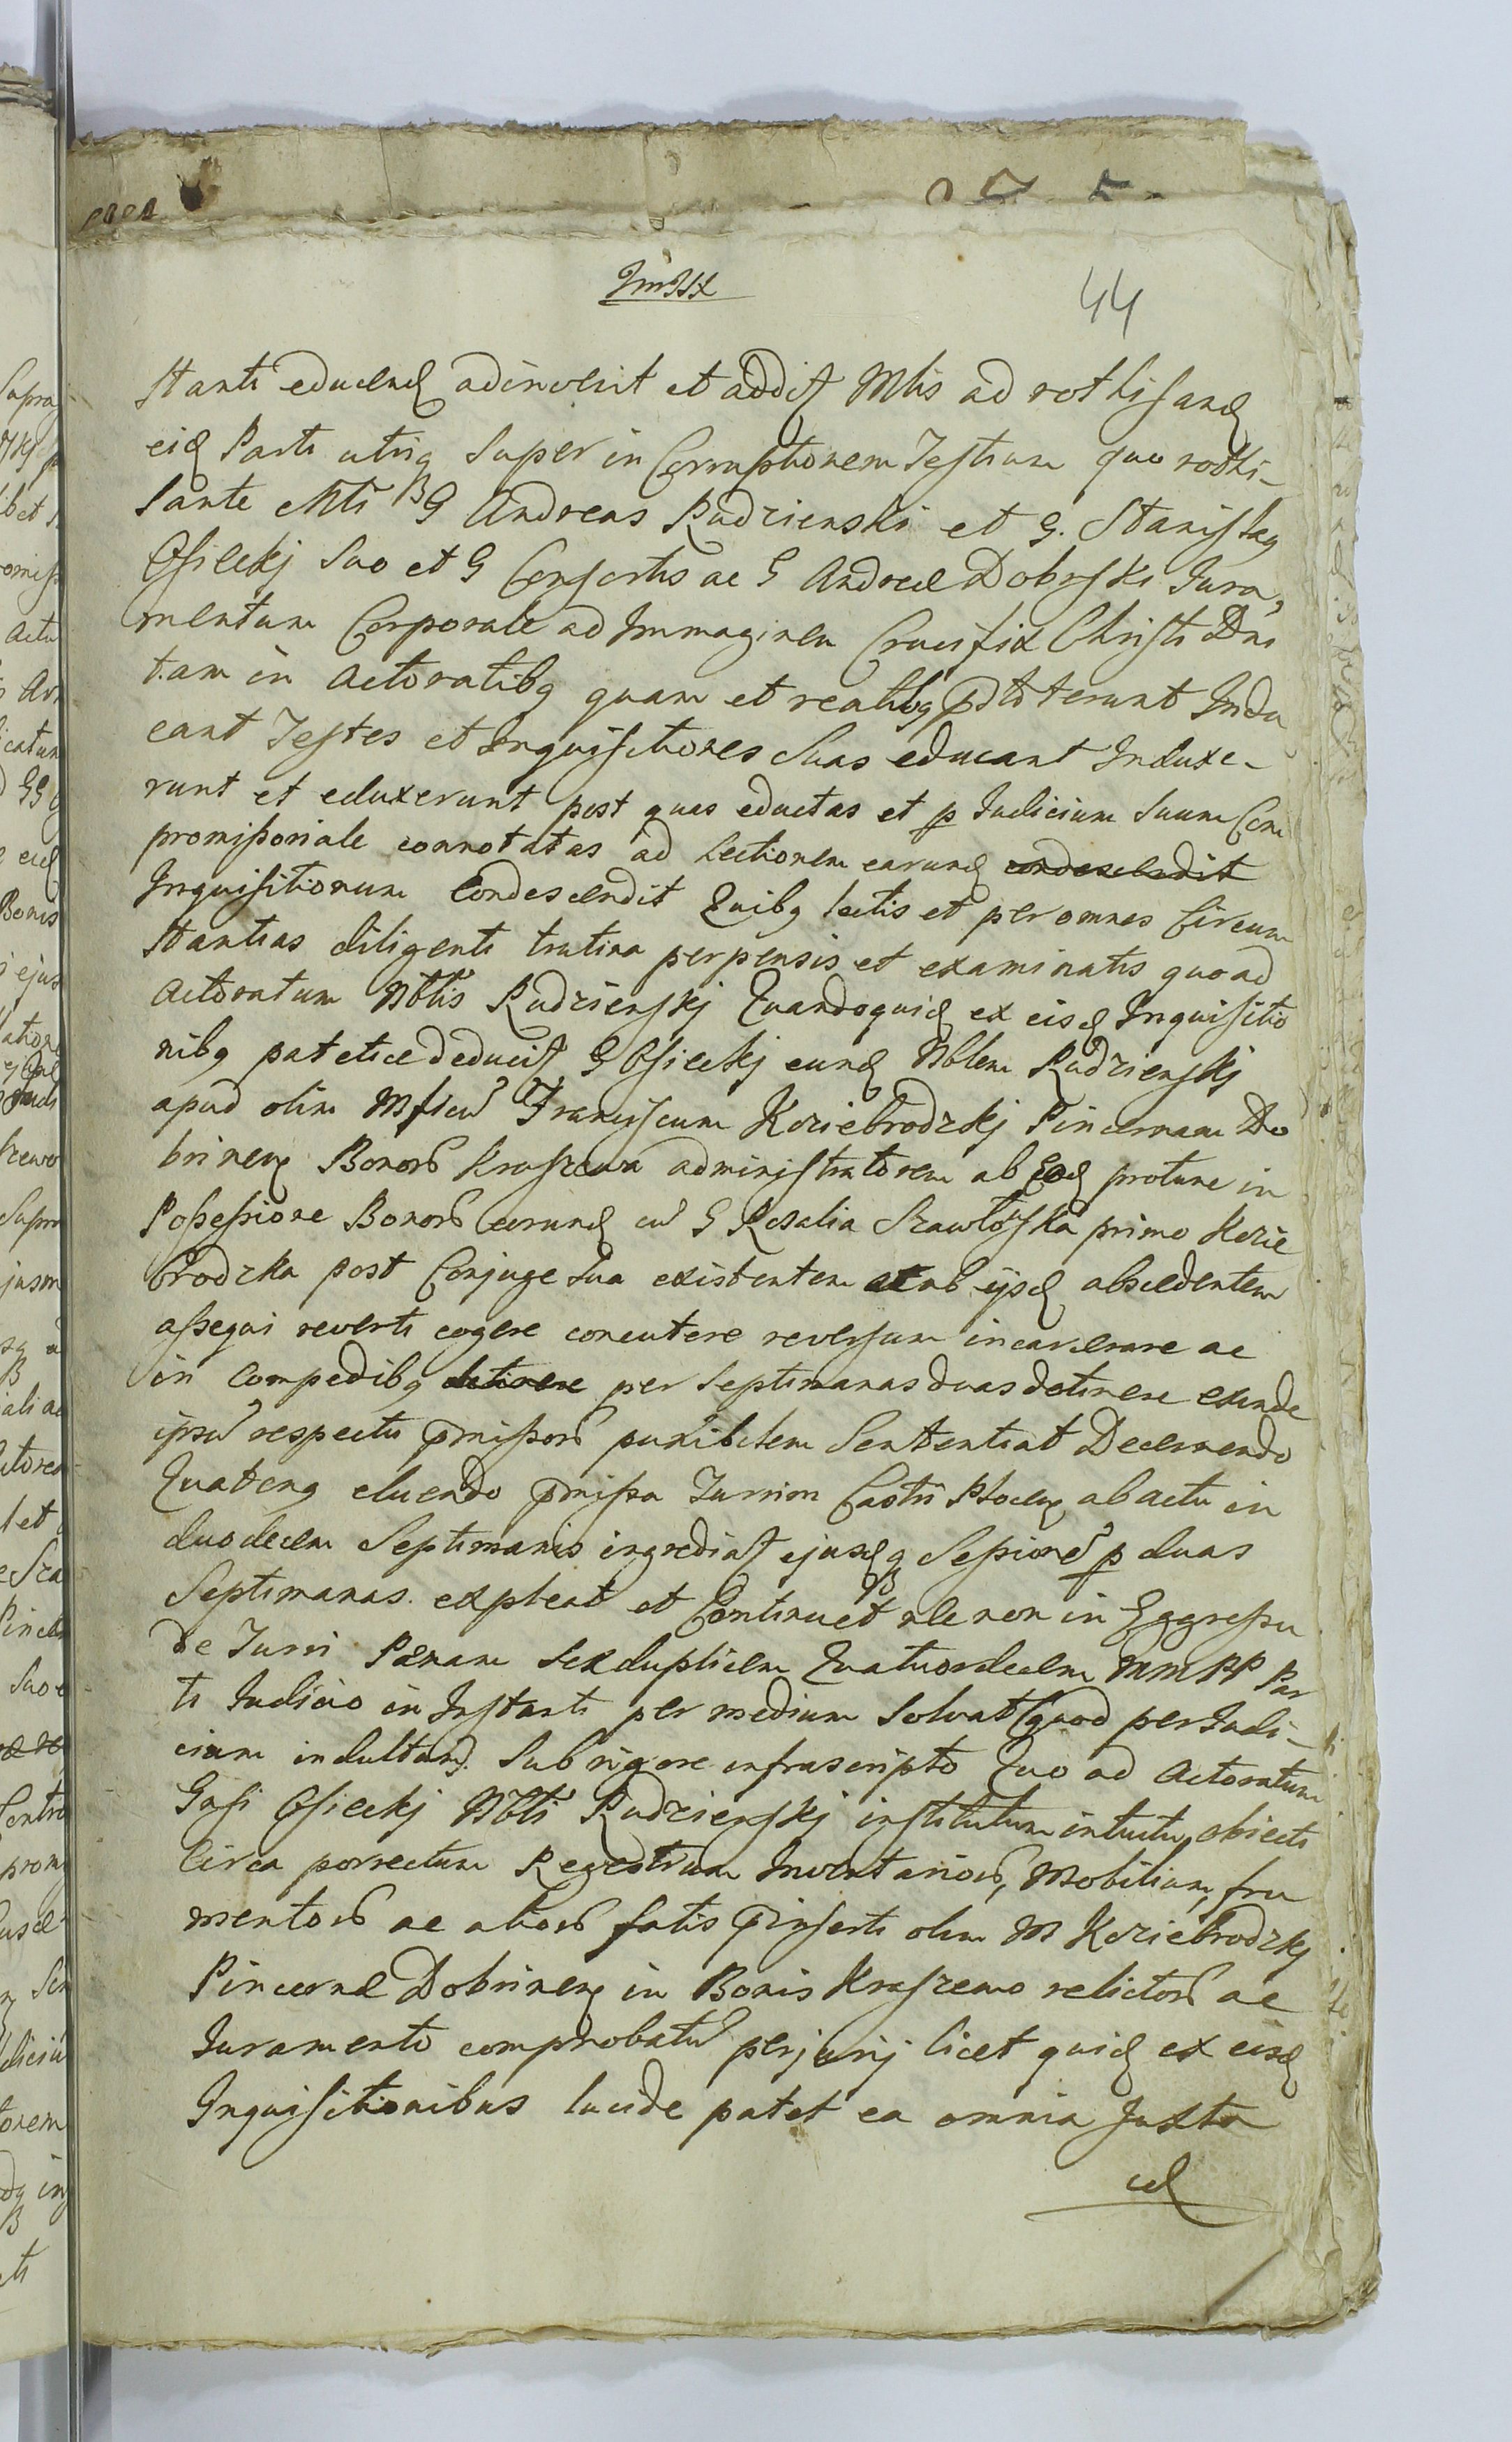 44
stanti educend adinvenit et addit Mtis ad rothisand
eid Parti utriq super in Corruptionem Testium quo rothi-
sante Mti G Andreas Rudzienski et G. Stanislag
Osieckj suo et G Consortis ac G Andreæ Dobrski Jura,
mentum Corporale ad Immaginem Crucifixi Christi Dni
tam in Actoratibg quam et reatibg pstiterunt Indu
cant Testes et Inquisitiones Suas educant Induxe-
runt et eduxerunt post quas eductas et p Judicium Suum Com
promissoriale connotatas ad Lectionem earund condescendit
Inquisitionum Condescendit Quibg lectis et per omnes Circum
stantias diligenti trutina perpensis et examinatis quo ad
Actoratum Nbtis Rudzienskj Quandoquid ex eisd Inquisitio
nibg patetice deducit G Osieckj eund Nblem Rudzienskj
apud olim Mficu Franciscum Koziebrodzkj Pincernam Do
brinens Bonor Kraszewa administratorem ab Eod protunc in
Possessione Bonor eorund cu G Rosalia Szawlowska primo Kozie
brodzka post Conjuge sua existentem et ab ijsd abscedentem
assequi reverti cogere concutere reversum incarcerare ac
in Compedibg detinere per Septimanas duas detinere exinde
ipsu respectu pmissor punibilem Sententiat Decernendo
Quateng eluendo pmissa Turrim Castri Plocens ab actu in
duodecem Septimanis ingrediat ejusdq Sessione p duas
Septimanas. expleat et Continuet nlenon in Eggressu
de Turri Pænam Sexduplicem Quatuordecem MMPP Par
ti Judicio in Instanti per medium Solvat (quod per Judi-
cium indultum). Sub rigore infrascripto Quo ad Actoratum
Gnsi Osieckj Nbti Rudzienskj institutum intuitu objecti
Circa porrectum Regestrum Inventarior, Mobilium, fru
mentor ac alior satis pinserti olim M Koziebrodzkj
Pincernæ Dobrinens in Bonis Kraszewo relictor ac
Juramento comprobatu perjurij licet quid ex eisd
Inquisitionibus lucide patet ea omnia Juxta